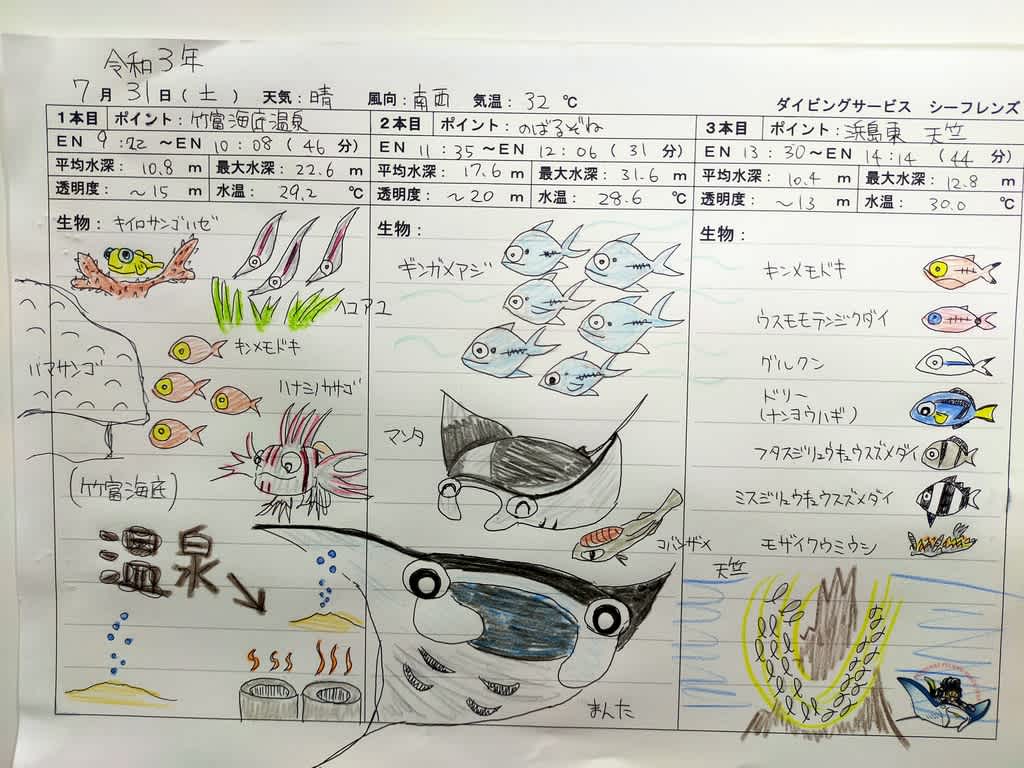 令和3年
7月31日(土) 天気:晴 風向:南西 気温:32℃
ダイビングサービス シーフレンズ
1本目 ポイント:竹富海底温泉
EN 9:22 ～EN 10:08 (46分)
平均水深:10.8m 最大水深:22.6m
透明度:～15m 水温:29.2℃
生物:キイロサンゴハゼ
ヘコアユ
キンメモドキ
ハマサンゴ
ハナミノカサゴ
(竹富海底)
温泉
2本目 ポイント:のばるぞね
EN 11:35～EN 12:06 (31分)
平均水深:17.6m 最大水深:31.6m
透明度:～20m 水温:28.6℃
生物:
ギンガメアジ
マンタ
コバンザメ
まんた
3本目 ポイント:浜島東 天竺
EN 13:30～EN 14:14 (44分)
平均水深:10.4m 最大水深:12.8m
透明度:～13m 水温:30.0℃
生物:
キンメモドキ
ウスモモテンジクダイ
グルクン
ドリー
(ナンヨウハギ)
フタスジリュウキュウスズメダイ
ミスジリュウキュウスズメダイ
モザイクウミウシ
天竺